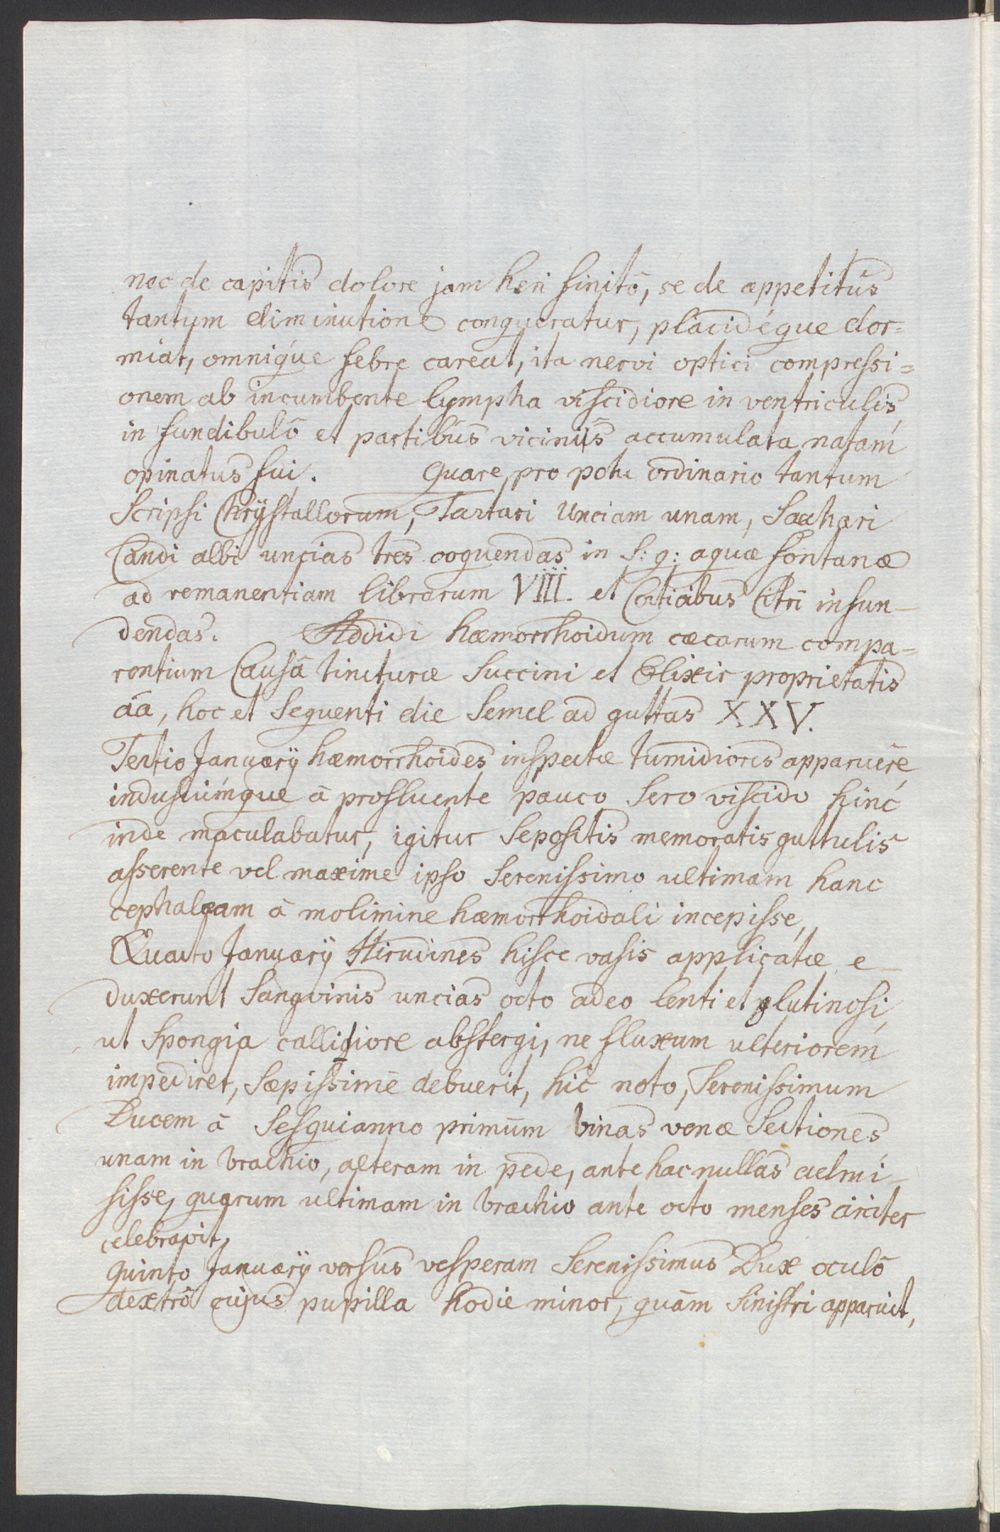 nec de capitis dolore jam heri finitô, se de appetitûs
tantum diminutione conqueratur, placidéque dor=
miat, omnique febre careat, ita nervi optici compressi=
onem ab incumbente lympha viscidiore in ventriculis,
in fundibulô et partibûs viciniis accumulata natam
opinatus fui. Quare pro potu ordinario tantum
Scripsi Chrystallorum, Tartari Unciam unam, Sachari
Candi albi uncias tres coquendas in S: q: aquæ fontanæ
ad remanentiam librarum VIII. et Corticibus Citri infun-
dendas. Addidi hæmorrhoidum cæcarum compa=
rentium Causâ tincturæ Succini et Elixir proprietatis
ãa, hoc et Sequenti die Semel ad guttas XXV.
Tertio Januarÿ hæmorrhoides inspectæ tumidiores apparuêre
indusiúmque â profluente pauco Sero viscido hinc
inde maculabatur, igitur Sepositis memoratis guttulis
asserente vel maxime ipso Serenissimo ultimam hanc
cephalæam â molimine hæmorrhoidali incepisse,
Quarto Januarÿ Hirudines hisce vasis applicatæ e_
duxerunt Sangvinis uncias octo adeo lenti et glutinosi,
ut Spongia callidiore abstergi, ne fluxum ulteriorem
impediret, Sæpissimè debuerit, hic noto, Serenissimum
Ducem â Sesquianno primûm binas venæ Sectiones
unam in brachio, alteram in pede, ante hac nullas admi_
sisse, quarum ultimam in brachio ante octo menses circiter
celebravit,
Quinto Januarÿ versus vesperam Serenissimus Dux oculô
dextrô cujus pupilla hodie minor, quâm Sinistri apparuit,